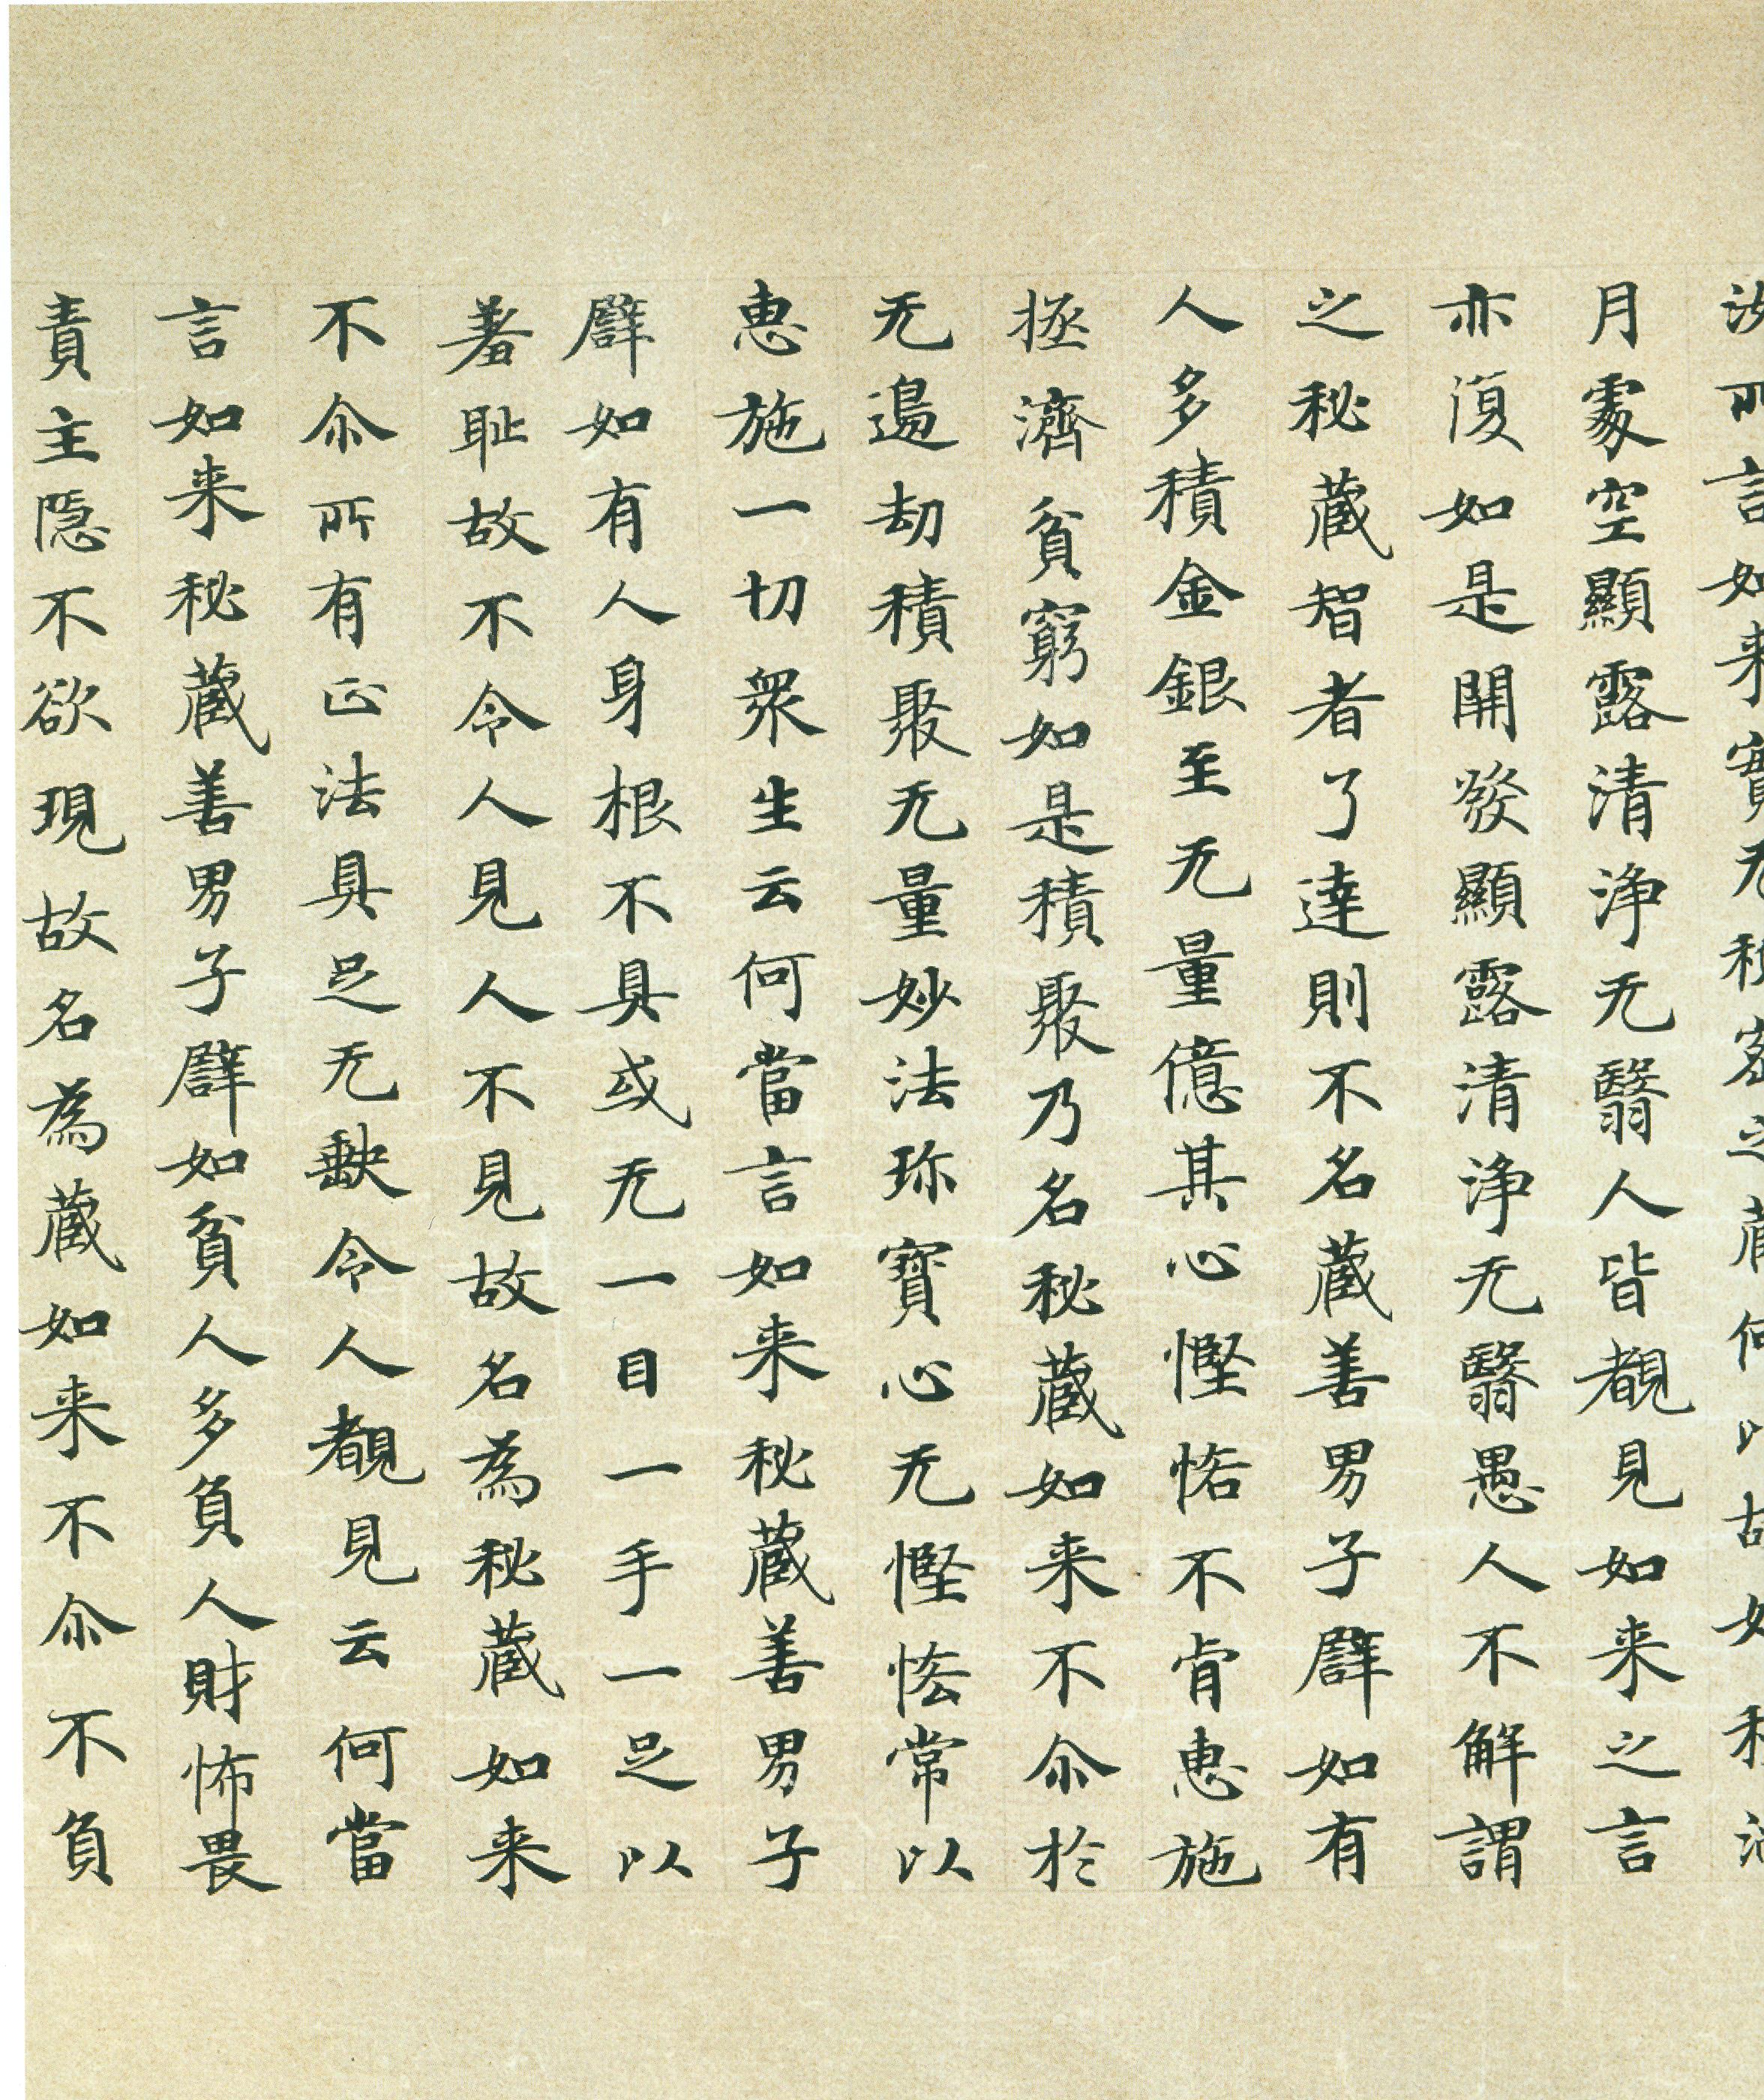 汝所言如来實无秘密之蔵何以故如秋滿
月䖏空顯露清浄无翳人皆覩見如来之言
亦復如是開發顯露清浄无翳愚人不解謂
之秘蔵智者了達則不名蔵善男子譬如有
人多積金銀至无量億其心慳悋不肯惠施
拯濟貧窮如是積聚乃名秘蔵如来不尒於
无邉劫積聚无量妙法珎寶心无慳悋常以
惠施一切衆生云何當言如来秘蔵善男子
譬如有人身根不具或无一目一手一足以
羞耻故不令人見人不見故名為秘蔵如来
不尒所有正法具足无缺令人覩見云何當
言如来秘蔵善男子譬如貧人多負人財怖畏
責主隱不欲現故名為蔵如来不尒不負